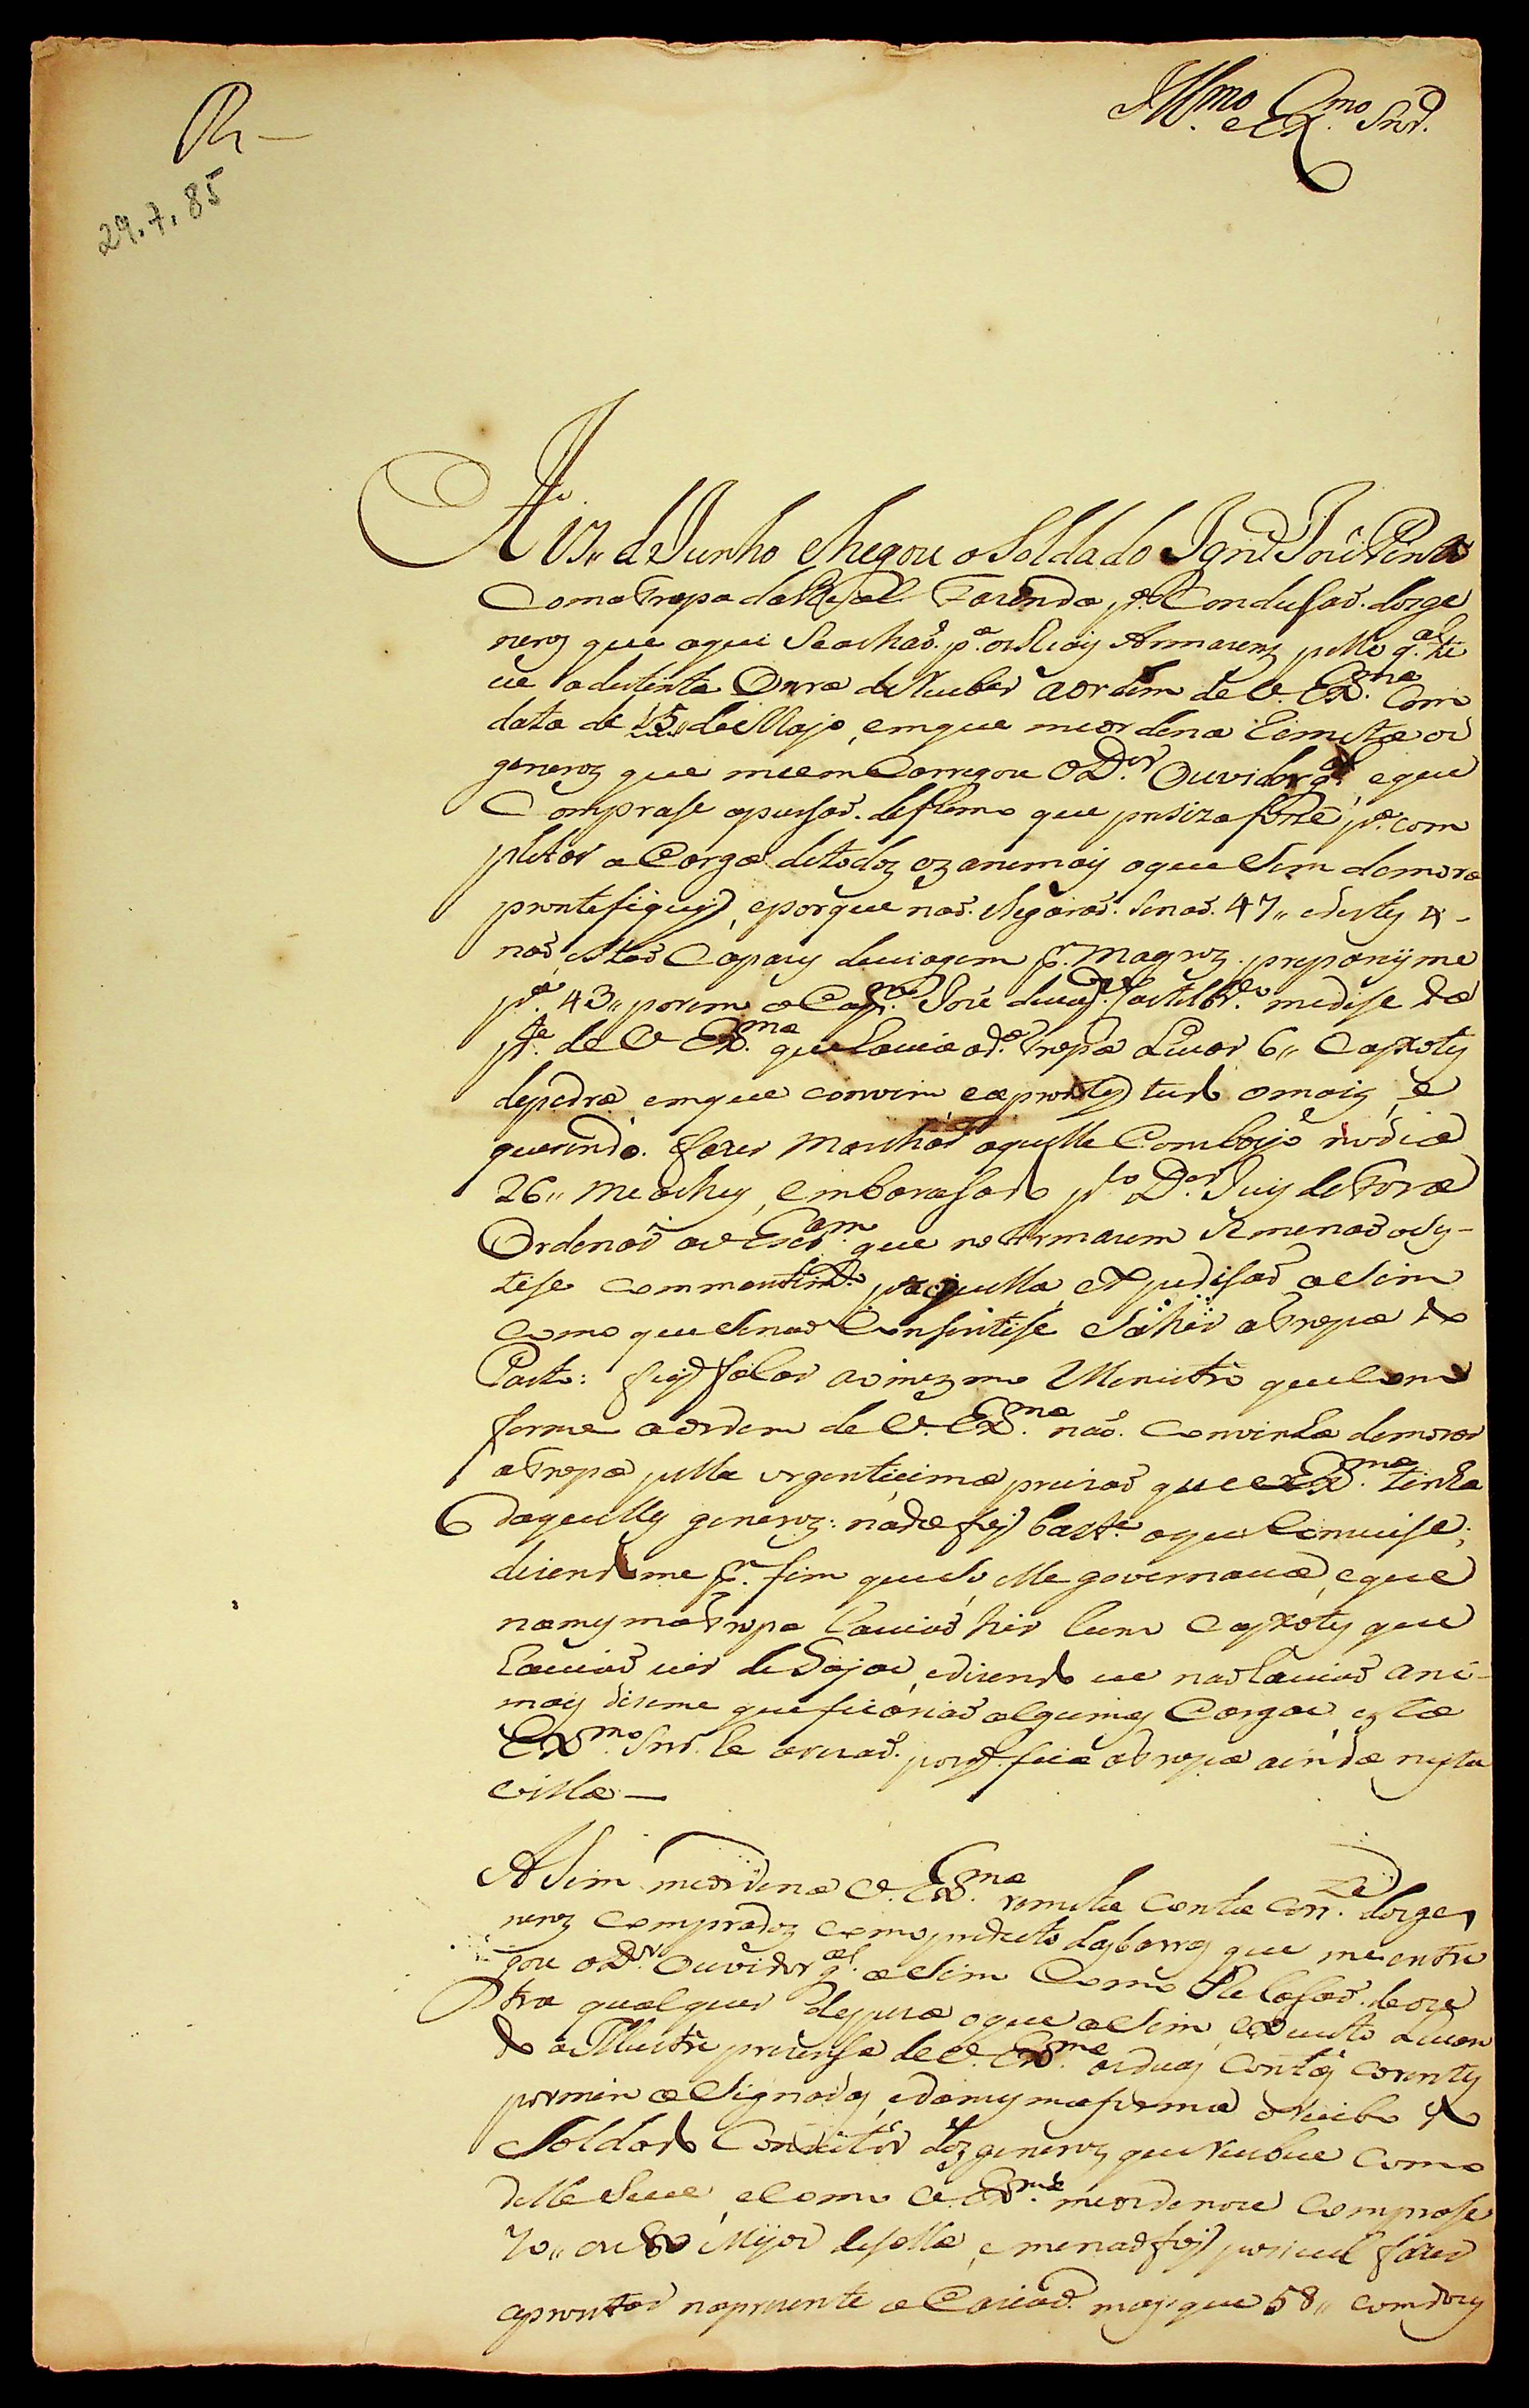 Ill.mo e Ex.mo Snr.
R
29.7.85
A 17,, de Junho chegou o Soldado Ign.o Joze Pinto
Com a Tropa da Real Fazenda p.a Condusaõ. dos ge
neroz que aqui Se achaõ. p.a os Reais Armazenz pello q.al ti
ve a destinta Onra de Receber a ordem de V. Ex.ma Com
data de 15,, de Mayo, em que me ordena Remeta os
generoz que me emCarregou o D.or Ouvidor g.al, e que
Comprase a porsaõ. de ferro que presiza fose p.a com
pletar a Carga de todos oz animais o que Sem demora
prontefiquei, e porque naõ. chegaraõ. Senaõ. 47,, e destes 4-
naõ estaõ Capazes de viagem p.r magroz. preparuyme
p.a 43,, porem o Cap.m Joze de me dise da
p.te de V Ex.ma que havia a d.a Tropa Levar 6,, Caxotes
de pedra em que convim e apromtei tudo o mais, e
querendo. fazer marchar aquelle Comboyo no dia
26,, me achei, embarasado p.lo D.or Juis de Fora
Ordenar ao Escr.am que no Armazem Se me naõ asys-
tese com mantim.to p.a aquella expedisaõ aSim
como que Se naõ Consentise Sahir a Tropa do
Pasto: fuy falar ao mezmo Menistro que Com
forme a ordem de V. Ex.ma naõ. convinha demorar
a Tropa pella urgenticima precizaõ que V Ex.ma tinha
daquelles generoz: nada foy bast.e a que Convise;
dizendome p.r fim que So elle governava, e que
na mesma Tropa haviaõ hir huns Caxotes que
haviaõ vir de Goyaz, e dizendo eu naõ haviaõ ani-
mais diseme que ficariaõ algumas Cargas esta
Ex.mo Snr. he a razaõ. porq. fica a Tropa ainda nesta
villa —
ASim me ordena V. Ex.ma remeta conta Corr.te doz ge
neroz compradoz como produto das barras que me entre
gou o D.r Ouvidor g.al aSim Como Relasaõ. de ou
tra qualquer despeza o que aSim executo Levan
do a Illustre prezensa de V. Ex.ma as duas Contas Corentes
por mim aSignadas, e da mesma forma o recibo do
Soldado Condutor doz generoz que recebeu Como
delle Se ve, e como V. Ex.ma me ordenou Comprase
70,, ou 80 Meyos de solla, e me naõ foy posivel fazer
aprontar na prezente o Caziaõ. mais que 58,, com